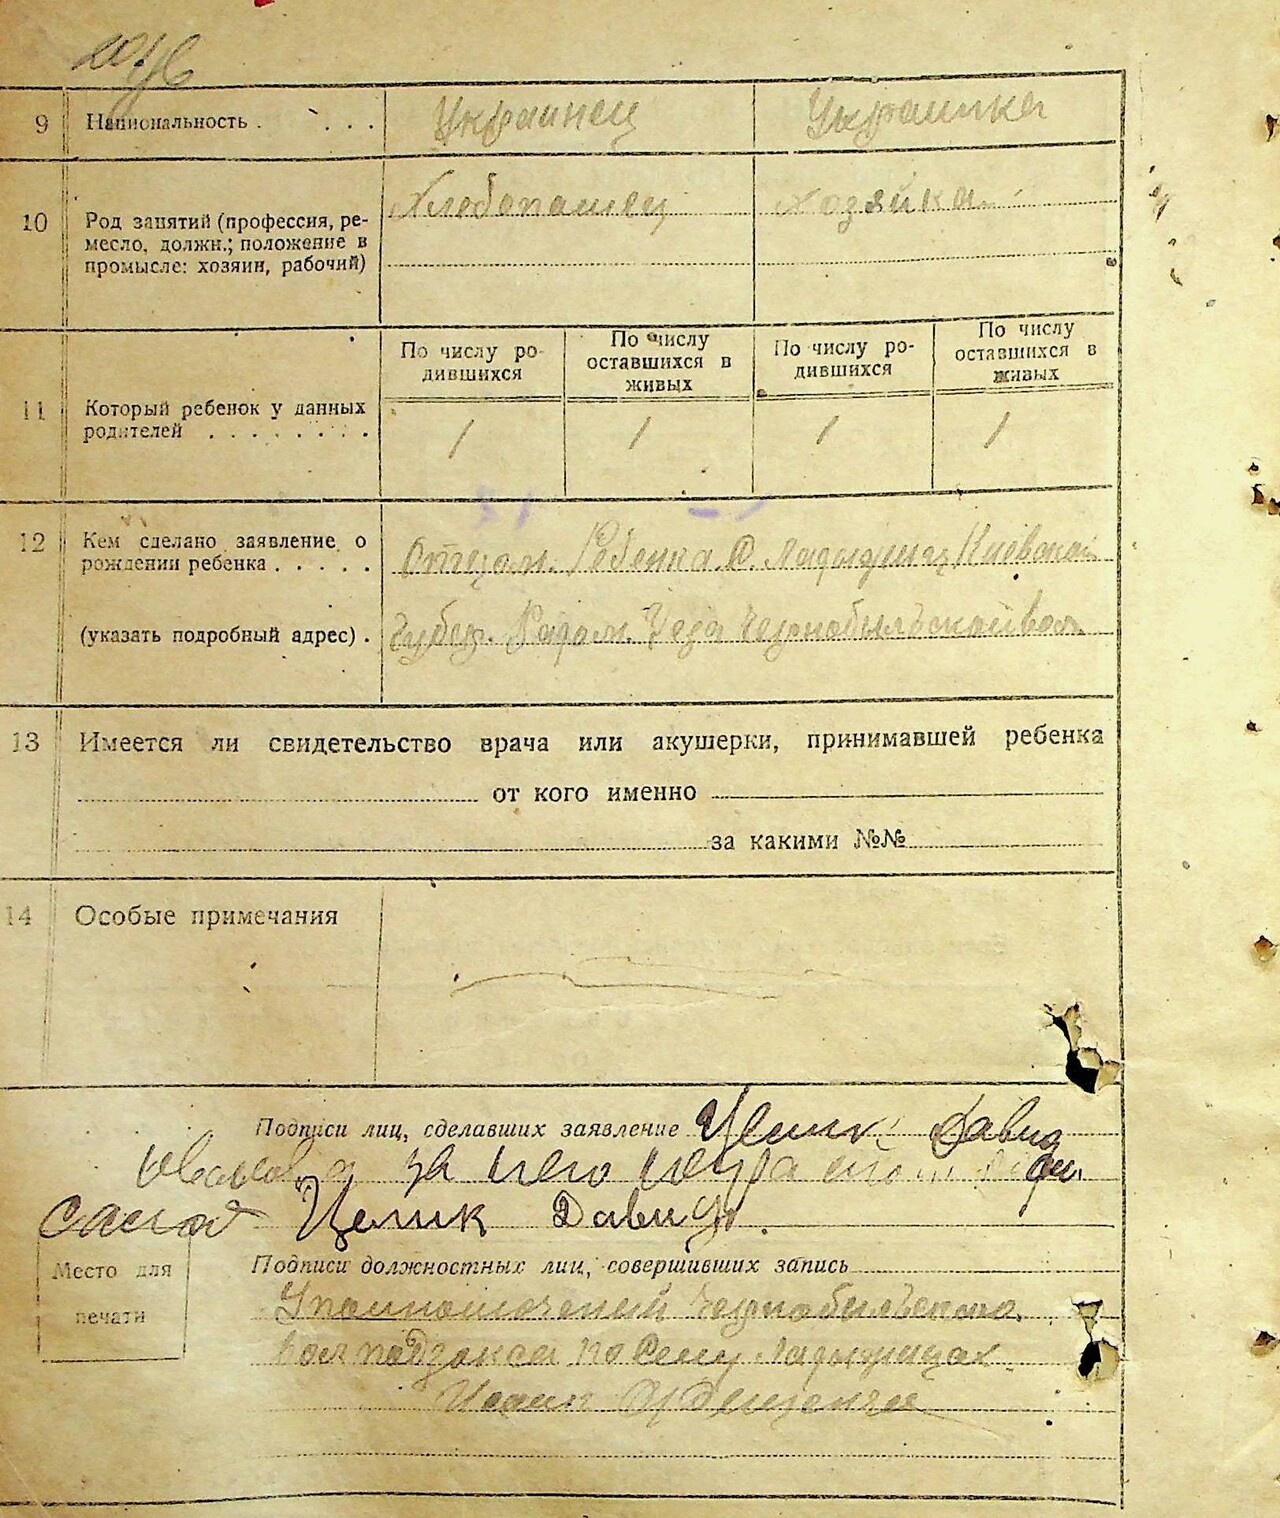 9 Национальность . . . . Украинец Украинка
10 Род занятий (профессия, ре-
месло, должн.; положение в
промысле: хозяин, рабочий)
Хлебопашец Хозяйка
По числу ро-
дившихся
По числу
оставшихся в
живых
По числу ро-
дившихся
По числу
оставшихся в
живых
11 Который ребенок у данных
родителей . . . . . . . .
1 1 1 1
12 Кем сделано заявление о
рождении ребенка . . . . .
Отцом. Ребенка С. Ладыжич Киевской
(указать подробный адрес) .
Губер. Радом. Уезд Чернобыльской вол.
13 Имеется ли свидетельство врача или акушерки, принимавшей ребенка
от кого именно
за какими №№
14 Особые примечания
Подписи лиц, сделавших заявление Целик Давид
за него
Целик Давид
Место для
печати
Подписи должностных лиц, совершивших запись
Чернобыльского
по Селу Ладыжичах